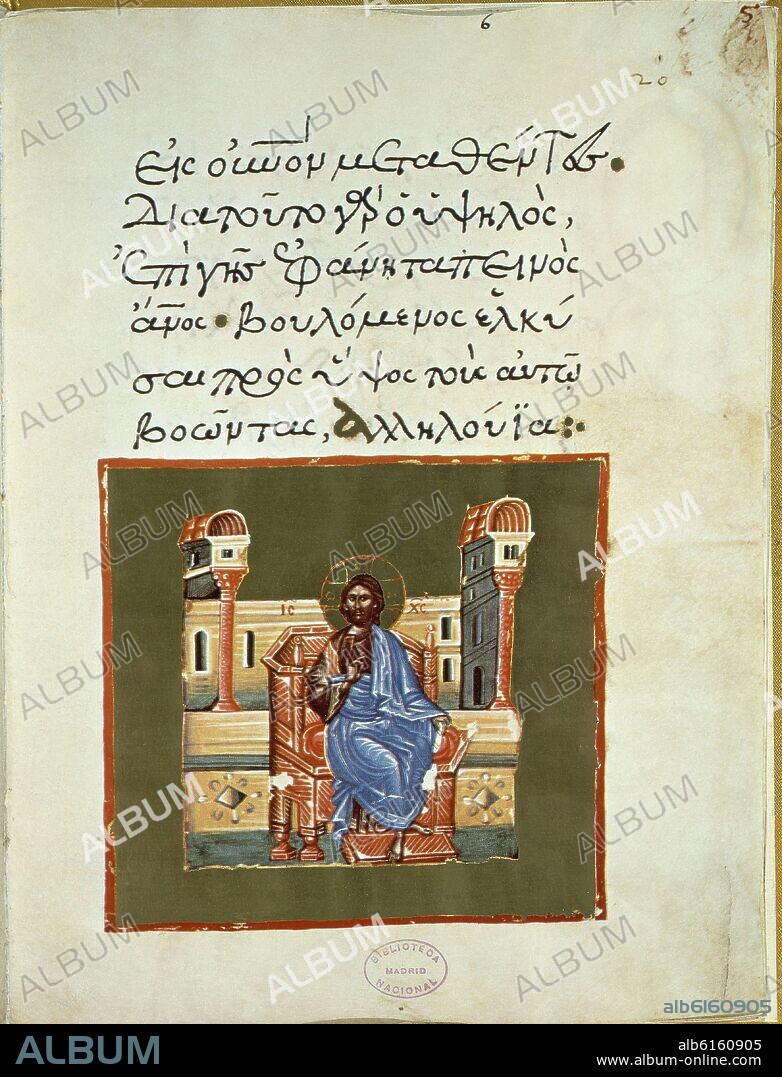 6
5
20
εἰς οὐ̅νο̅ν μεταθέντες·
Διατοῦτο γὰρ ὁ ὑψηλὸς,
ἐπὶ γῆς ἐφάνη ταπεινὸς
ἄ̅νος· βουλόμενος ἑλκύ
σαι πρὸς ὕψος τοὺς αὐτῶ
βοῶντας, Ἀλληλούϊα:·
ἸC̅ X̅C̅
BIBLIOTECA
MADRID
NACIONAL
alb6160905
ALBUM
alb6160905
www.album-online.com